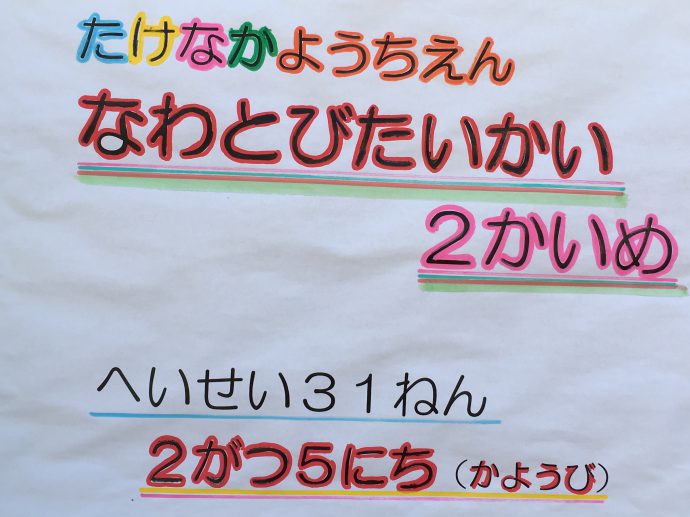 たけなかようちえん
なわとびたいかい
２かいめ
へいせい３１ねん
２がつ５にち（かようび）